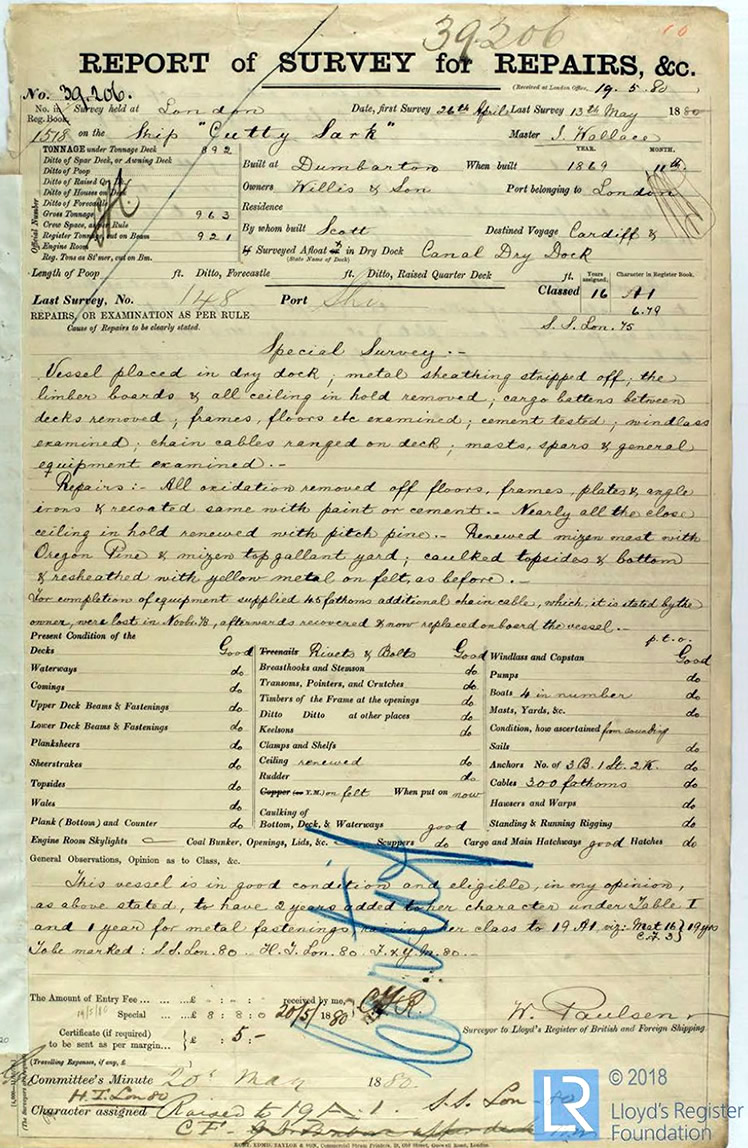 39206
REPORT of SURVEY for REPAIRS, &c.
(Received at London Office, 19.5.80)
No. 39206.
No. in Survey held at London Date, first Survey 26th April Last Survey 13th May 1880
Reg. Book.
1518 on the Ship "Cutty Sark" Master J. Wallace
TONNAGE under Tonnage Deck 892
Ditto of Spar Deck, or Awning Deck
Ditto of Poop
Ditto of Raised Qr Deck
Ditto of Houses on Deck
Ditto of Forecastle
Gross Tonnage 963
Crew Space, as per Rule
Register Tonnage, cut on Beam 921
Engine Room
Reg. Tons as St'mer, cut on Bm.
Official Number
YEAR. MONTH.
Built at Dumbarton When built 1869 11th
Owners Willis & Son Port belonging to London
Residence
By whom built Scott Destined Voyage Cardiff &
If Surveyed Afloat or in Dry Dock Canal Dry Dock
(State Name of Dock)
Length of Poop ft. Ditto, Forecastle ft. Ditto, Raised Quarter Deck ft.
Years assigned. Character in Register Book.
Last Survey, No. 148 Port Classed 16 A1
6.79
REPAIRS, OR EXAMINATION AS PER RULE
Cause of Repairs to be clearly stated.
S.S. Lon. 75
Special Survey.-
Vessel placed in dry dock; metal sheathing stripped off; the
limber boards & all ceiling in hold removed; cargo battens between
decks removed; frames, floors etc examined; cement tested; windlass
examined; chain cables ranged on deck; masts, spars & general
equipment examined.-
Repairs:- All oxidation removed off floors, frames, plates & angle
irons & recoated same with paint or cement.- Nearly all the close
ceiling in hold renewed with pitch pine.- Renewed mizen mast with
Oregon Pine & mizen top gallant yard; caulked topsides & bottom
& resheathed with yellow metal on felt, as before.-
For completion of equipment supplied 45 fathoms additional chain cable, which, it is stated by the
owner, were lost in Novbr 78, afterwards recovered & now replaced on board the vessel.-
p.t.o.
Present Condition of the
Decks Good
Waterways do
Comings do
Upper Deck Beams & Fastenings do
Lower Deck Beams & Fastenings do
Planksheers do
Sheerstrakes do
Topsides do
Wales do
Plank (Bottom) and Counter do
Treenails Rivets & Bolts Good
Breasthooks and Stemson do
Transoms, Pointers, and Crutches do
Timbers of the Frame at the openings do
Ditto Ditto at other places do
Keelsons do
Clamps and Shelfs
Ceiling renewed do
Rudder do
Copper (or Y.M.) on felt When put on now
Caulking of
Bottom, Deck, & Waterways good
Windlass and Capstan Good
Pumps do
Boats 4 in number do
Masts, Yards, &c. do
Condition, how ascertained from sounding
Sails do
Anchors No. of 3 B. 1 St. 2 K. do
Cables 300 fathoms do
Hawsers and Warps do
Standing & Running Rigging do
Engine Room Skylights Coal Bunker, Openings, Lids, &c. Scuppers do Cargo and Main Hatchways good Hatches do
General Observations, Opinion as to Class, &c.
This vessel is in good condition and eligible, in my opinion,
as above stated, to have 2 years added to her character under Table I
and 1 year for metal fastenings raising her class to 19 A1 viz: Mat 16 } 19 yrs
C.F. 3 }
To be marked: S.S. Lon. 80 . H.T. Lon. 80 F. & Y.M. 80.-
The Amount of Entry Fee £ : - : received by me,
19/5/80 Special £ 8 : 8 : 0 20/5/1880
Certificate (if required) £ : 5 : -
to be sent as per margin
W. Paulsen
Surveyor to Lloyd's Register of British and Foreign Shipping
(Travelling Expenses, if any, £
Committee's Minute 20th May 1880.
H.T. Lon 80
Character assigned Raised to 19 A.1. S.S. Lon
C F
© 2018
LR
Lloyd's Register
Foundation